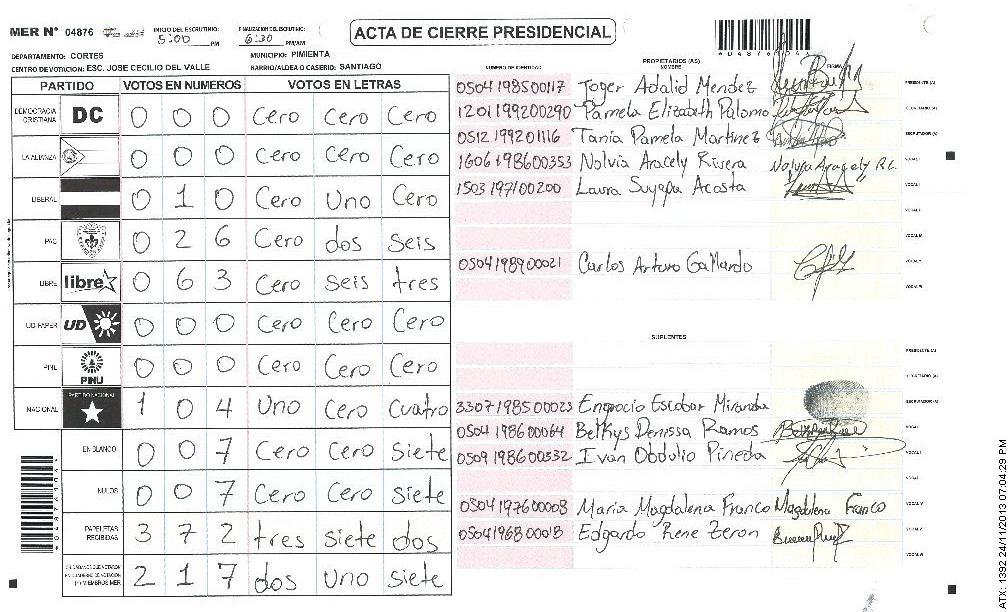 MER Nº 04876
INICIO DEL ESCRUTINIO: 5:00 PM
FINALIZACION DEL ESCRUTINIO: 6:30 PM/AM
ACTA DE CIERRE PRESIDENCIAL
DEPARTAMENTO: CORTES
MUNICIPIO: PIMIENTA
CENTRO DE VOTACION: ESC. JOSE CECILIO DEL VALLE
BARRIO/ALDEA O CASERIO: SANTIAGO
PARTIDO VOTOS EN NUMEROS VOTOS EN LETRAS
DEMOCRACIA CRISTIANA DC 0 0 0 Cero Cero Cero
LA ALIANZA 0 0 0 Cero Cero Cero
LIBERAL 0 1 0 Cero Uno Cero
PAC 0 2 6 Cero dos seis
LIBRE libre 0 6 3 Cero seis tres
UD-FAPER UD 0 0 0 Cero Cero Cero
PINU PINU 0 0 0 Cero Cero Cero
NACIONAL PARTIDO NACIONAL 1 0 4 Uno Cero Cuatro
EN BLANCO 0 0 7 Cero Cero Siete
NULOS 0 0 7 Cero Cero siete
PAPELETAS RECIBIDAS 3 7 2 tres siete dos
2 1 7 dos Uno siete
PROPIETARIOS (AS)
NUMERO DE IDENTIDAD NOMBRE FIRMA
0504198500117 Toger Adalid Mendez PRESIDENTE (A)
1201199200290 Pamela Elizabeth Palomo SECRETARIO (A)
0512199201116 Tania Pamela Martinez ESCRUTADOR (A)
1606198600353 Nolvia Aracely Rivera Nolvia Aracely R.
1503197100200 Laura Suyapa Acosta
0504198900021 Carlos Arturo Gallardo
SUPLENTES
PRESIDENTE (A)
SECRETARIO (A)
3307198500023 Engracio Escobar Miranda ESCRUTADOR (A)
0504198600064 Belkys Denissa Ramos
0509198600332 Ivan Obdulio Pineda
0504197600008 Maria Magdalena Franco Magdalena Franco
0504196800013 Edgardo Rene Zeron
ATX: 1392 24/11/2013 07:04:29 PM